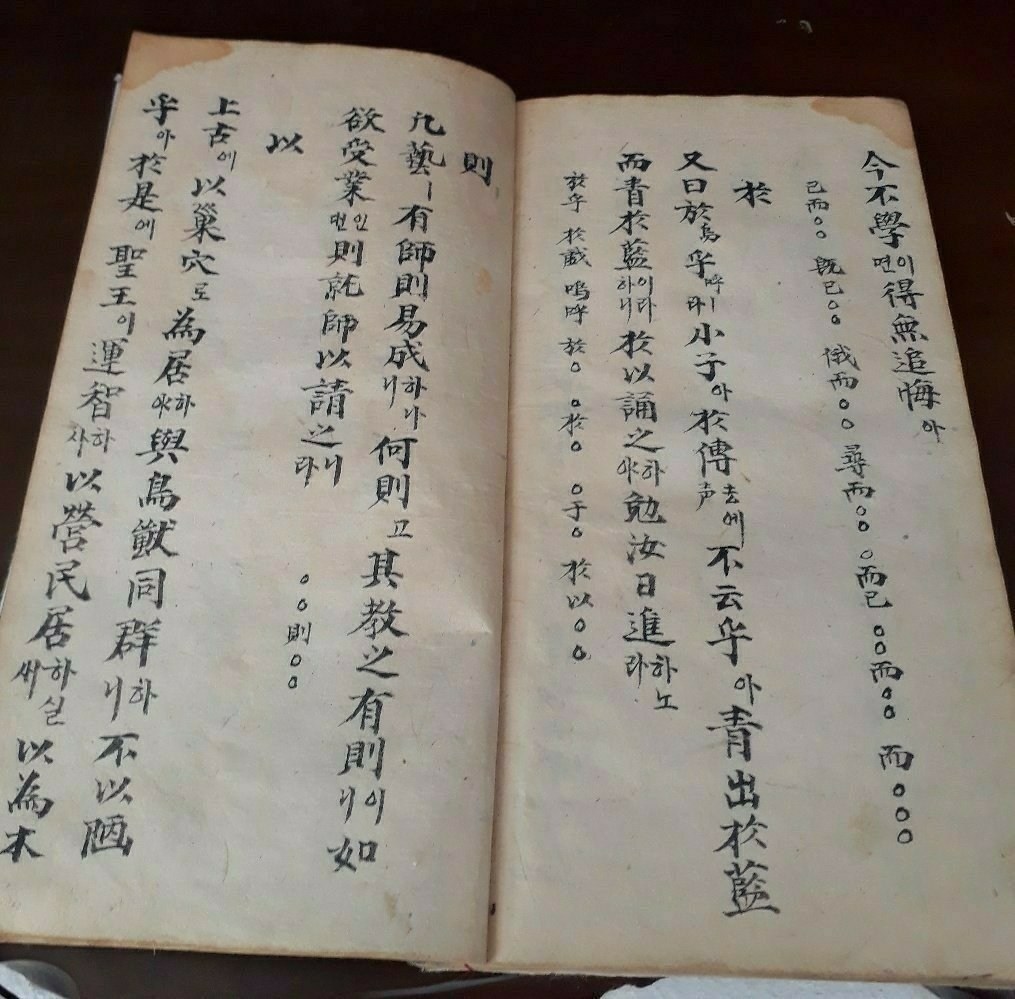 今不學면이得無追悔아
已而○○ 旣已○○ 俄而○○ 尋而○○ ○而已 ○○而○○ 而○○○
於
又曰於烏乎呼ㅣ라小子아於傳去声에不云乎아青出於藍
而青於藍이라하니於以誦之하야勉汝日進하노라
於乎 於戱 嗚呼 於○ ○於○ ○于○ 於以○○
則
凡藝ㅣ有師則易成하나니何則고其教之有則이니如
欲受業인면則就師以請之니라 ○○則○○
以
上古에以巢穴로為居하야與鳥獸同群하니不以陋
乎아於是에聖王이運智하사以營民居하실싸以為木